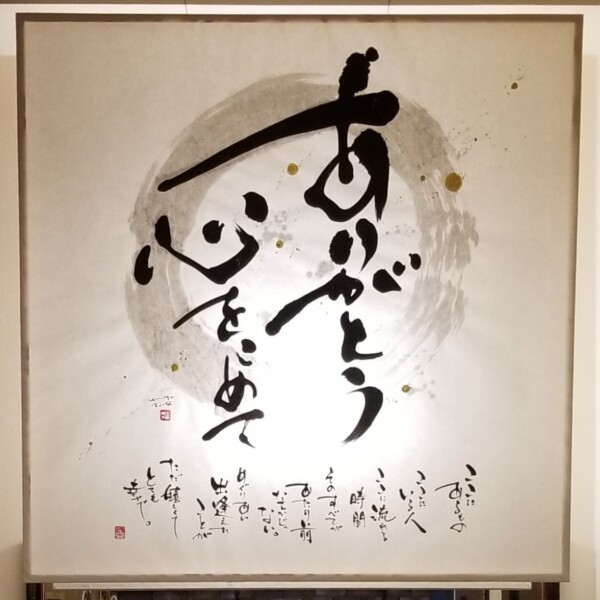 ありがとう
心をこめて
ここに
あるもの
ここに
いる人
ここに流れる
時間
そのすべてが
あたり前
ない。
めぐりあい
出逢えた
ことが
ただ嬉しくて
とても
幸せ。